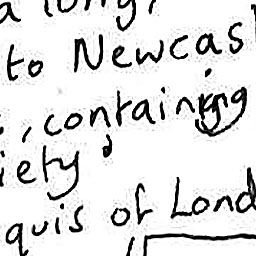 a long,
to Newcas
, containing
iety
quis of Lond